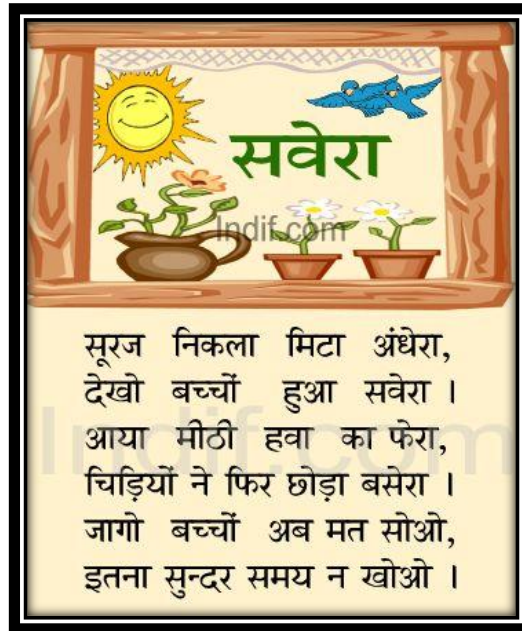 सवेरा
Indif.com
सूरज निकला मिटा अंधेरा,
देखो बच्चों हुआ सवेरा ।
आया मीठी हवा का फेरा,
चिड़ियों ने फिर छोड़ा बसेरा ।
जागो बच्चों अब मत सोओ,
इतना सुन्दर समय न खोओ ।
Indif.com